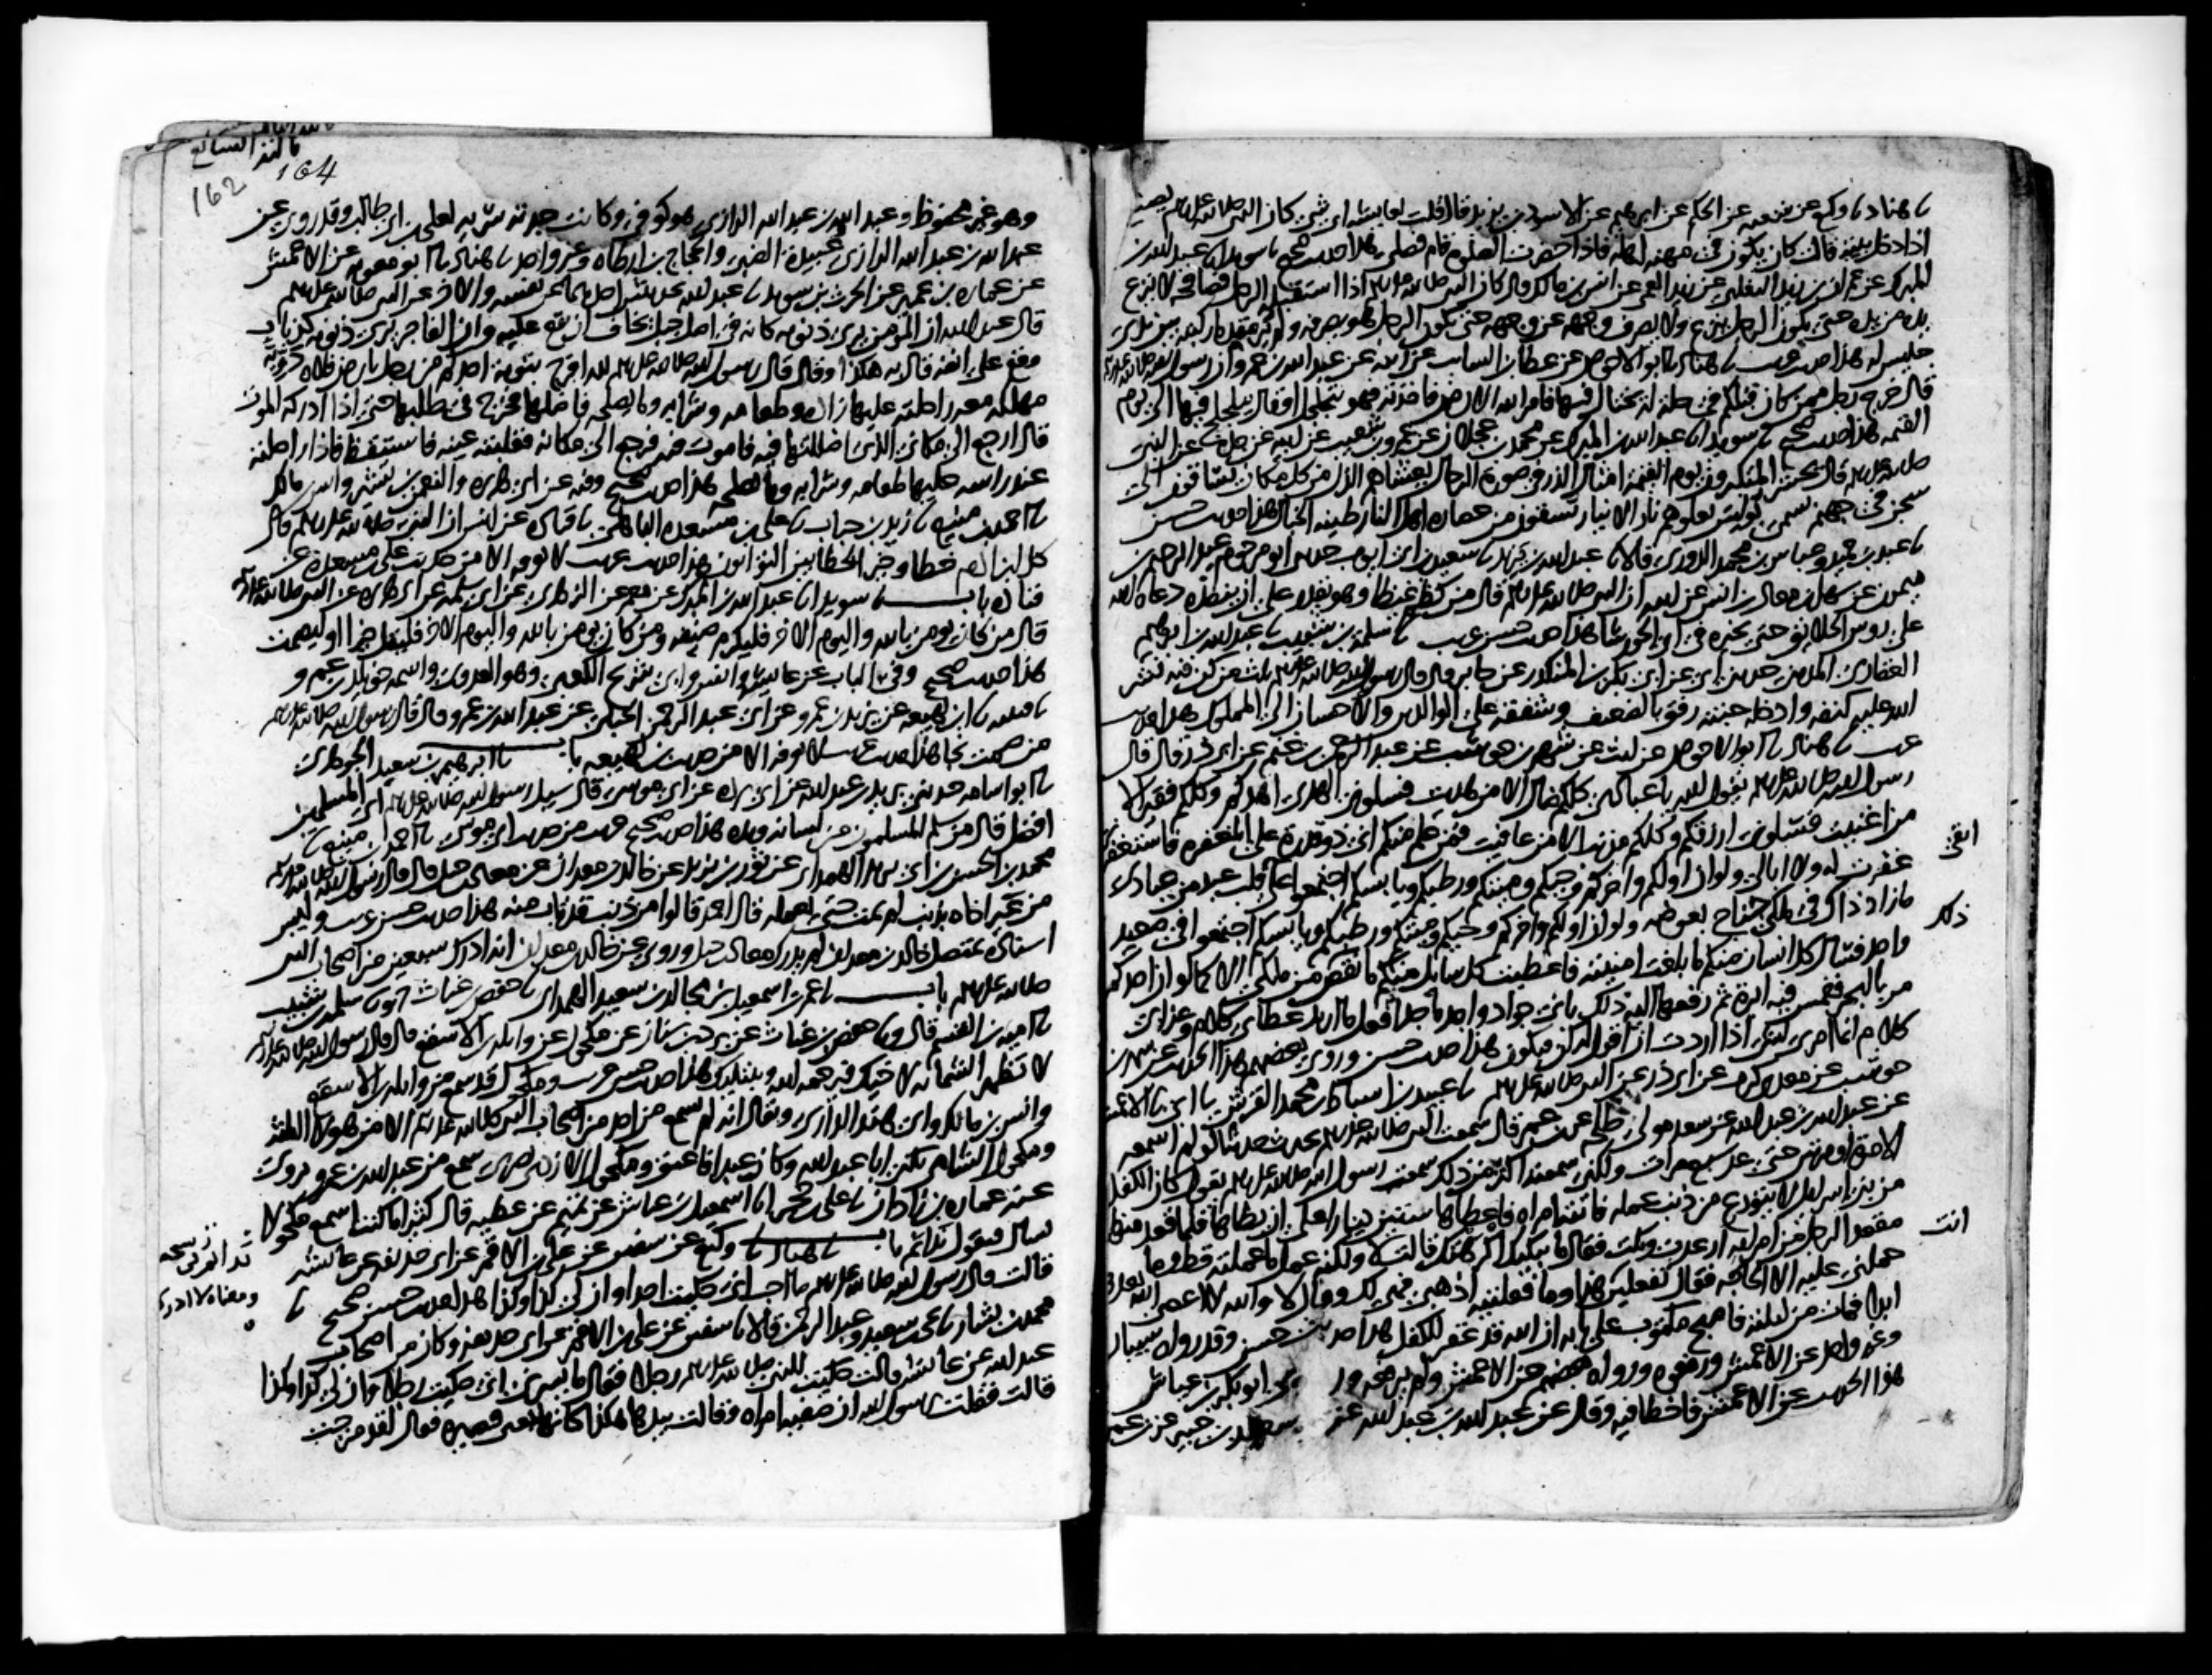 نا هناد نا وكيع عن شعبه عن الحكم عن ابرهيم عن الاسود بن يزيد قال قلت لعايشه اى شى كان النبى صلى الله عليه وسلم يصنع
اذا دخل بيته قالت كان يكون فى مهنه اهله فاذا حضرت الصلوة قام فصلى هذا حديث صحيح نا سويد انا عبد الله بن
المبرك عن عمران بن زيد التغلبى عن زيد العمى عن انس بن مالك قال كان النبى صلى الله عليه وسلم اذا استقبله الرجل فصافحه لا ينزع
يده من يده حتى يكون الرجل ينزع ولا يصرف وجهه عن وجهه حتى يكون الرجل هو يصرفه ولم ير مقدما ركبتيه بين يدى
جليس له هذا حديث غريب نا هناد نا ابو الاحوص عن عطا بن السايب عن ابيه عن عبد الله بن عمرو ان رسول الله صلى الله عليه وسلم
قال خرج رجل ممن كان قبلكم فى حلة له يختال فيها فامر الله الارض فاخذته فهو يتجلجل او قال يتلجلج فيها الى يوم
القيمه هذا حديث صحيح نا سويد انا عبد الله بن المبرك عن محمد بن عجلان عن عمرو بن شعيب عن ابيه عن جده عن النبى
صلى الله عليه وسلم قال يحشر المتكبرون يوم القيمة امثال الذر فى صورة الرجال يغشاهم الذل من كل مكان يساقون الى
سجن فى جهنم يسمى بولس تعلوهم نار الانيار يسقون من عصارة اهل النار طينه الخبال هذا حديث حسن
نا عبد بن حميد وعباس بن محمد الدورى قالا نا عبد الله بن يزيد نا سعيد بن ابى ايوب حدثنى ابو مرحوم عبد الرحيم بن
ميمون عن سهل بن معاذ بن انس عن ابيه ان النبى صلى الله عليه وسلم قال من كظم غيظا وهو يقدر على ان ينفذه دعاه الله
على روس الخلايق حتى يخيره فى اى الحور شا هذا حديث حسن غريب نا سلمة بن شبيب نا عبد الله بن ابرهيم
الغفارى المدينى حدثنى ابى عن ابى بكر بن المنكدر عن جابر قال قال رسول الله صلى الله عليه وسلم ثلث من كن فيه نشر
الله عليه كنفه وادخله جنته رفق بالضعيف وشفقه على الوالدين والاحسان الى المملوك هذا حديث
غريب نا هناد نا ابو الاحوص عن ليث عن شهر بن حوشب عن عبد الرحمن بن غنم عن ابى ذر قال قال
رسول الله صلى الله عليه وسلم يقول الله يا عبادى كلكم ضال الا من هديت فسلونى الهدى اهدكم وكلكم فقير الا
من اغنيت فسلونى ارزقكم وكلكم مذنب الا من عافيت فمن علم منكم انى ذو قدرة على المغفره فاستغفرنى
غفرت له ولا ابالى ولو ان اولكم واخركم وحيكم وميتكم ورطبكم ويابسكم اجتمعوا على قلب عبد من عبادى
اتقى
ما زاد ذاك فى ملكى جناح بعوضه ولو ان اولكم واخركم وحيكم وميتكم ورطبكم ويابسكم اجتمعوا فى صعيد
ذلك
واحد فسال كل انسان منكم ما بلغت امنيته فاعطيت كل سايل منكم ما نقص من ملكى الا كما لو ان احدكم
مر بالبحر فغمس فيه ابرة ثم رفعها اليه ذلك بانى جواد واجد ماجد افعل ما اريد عطاى كلام وعذابى
كلام انما امرى لشى اذا اردت ان اقول له كن فيكون هذا حديث حسن وروى بعضهم هذا الحديث عن شهر بن
حوشب عن معدى كرب عن ابى ذر عن النبى صلى الله عليه وسلم نا عبيد بن اسباط بن محمد القرشى نا ابى نا الاعمش
عن عبد الله بن عبد الله عن سعد مولى طلحه عن ابن عمر قال سمعت النبى صلى الله عليه وسلم يحدث حديثا لو لم اسمعه
الا مرة او مرتين حتى عد سبع مرات ولكنى سمعته اكثر من ذلك سمعت رسول الله صلى الله عليه وسلم يقول كان الكفل
من بنى اسرايل لا يتورع من ذنب عمله فاتته امراه فاعطاها ستين دينارا على ان يطاها فلما قعد منها
مقعد الرجل من امراته ارعدت وبكت فقال ما يبكيك اكرهتك قالت لا ولكنه عمل ما عملته قط وما
انت
حملنى عليه الا الحاجه فقال تفعلين هذا وما فعلته اذهبى فهى لك وقال لا والله لا اعصى الله بعدها
ابدا فمات من ليلته فاصبح مكتوب على بابه ان الله قد غفر للكفل هذا حديث حسن وقد رواه شيبان
وغير واحد عن الاعمش ورفعوه ورواه بعضهم عن الاعمش ولم يرفعه وروى ابو بكر بن عياش
هذا الحديث عن الاعمش فاخطا فيه وقال عن عبد الله بن عبد الله عن سعيد بن جبير عن ابن عمر
162 164
وهو غير محفوظ وعبد الله بن عبد الله الرازى هو كوفى وكانت جدته سريه لعلى بن ابى طالب وقد روى عن
عبد الله بن عبد الله الرازى عبيدة الضبى والحجاج بن ارطاه وغير واحد نا هناد نا ابو معويه عن الاعمش
عن عماره بن عمير عن الحرث بن سويد نا عبد الله بحديثين احدهما عن نفسه والاخر عن النبى صلى الله عليه وسلم
قال عبد الله ان المومن يرى ذنوبه كانه فى اصل جبل يخاف ان يقع عليه وان الفاجر يرى ذنوبه كذباب
وقع على انفه قال به هكذا وقال قال رسول الله صلى الله عليه وسلم لله افرح بتوبة احدكم من رجل بارض فلاة دويه
مهلكه معه راحلته عليها زاده وطعامه وشرابه وما يصلحه فاضلها فخرج فى طلبها حتى اذا ادركه الموت
قال ارجع الى مكانى الذى اضللتها فيه فاموت فيه فرجع الى مكانه فغلبته عينه فاستيقظ فاذا راحلته
عند راسه عليها طعامه وشرابه وما يصلحه هذا حديث صحيح وفيه عن ابى هريره والنعمن بن بشير وانس بن مالك
نا احمد بن منيع نا زيد بن حباب نا على بن مسعده الباهلى نا قتاده عن انس ان النبى صلى الله عليه وسلم قال
كل ابن ادم خطا وخير الخطايين التوابون هذا حديث غريب لا نعرفه الا من حديث على بن مسعده عن
قتاده باب نا سويد انا عبد الله بن المبرك عن معمر عن الزهرى عن ابى سلمه عن ابى هريره عن النبى صلى الله عليه وسلم
قال من كان يومن بالله واليوم الاخر فليكرم ضيفه ومن كان يومن بالله واليوم الاخر فليقل خيرا او ليصمت
هذا حديث صحيح وفى الباب عن عايشه وانس وابى شريح الكعبى وهو العدوى واسمه خويلد بن عمرو
نا قتيبه نا ابن لهيعه عن يزيد بن عمرو عن ابى عبد الرحمن الحبلى عن عبد الله بن عمرو قال قال رسول الله صلى الله عليه وسلم
من صمت نجا هذا حديث غريب لا نعرفه الا من حديث ابن لهيعه باب نا ابرهيم بن سعيد الجوهرى
نا ابو اسامه حدثنى بريد بن عبد الله عن ابى برده عن ابى موسى قال سيل رسول الله صلى الله عليه وسلم اى المسلمين
افضل قال من سلم المسلمون من لسانه ويده هذا حديث صحيح غريب من حديث ابى موسى نا احمد بن منيع نا
محمد بن الحسن بن ابى يزيد الهمدانى عن ثور بن يزيد عن خالد بن معدان عن معاذ بن جبل قال قال رسول الله صلى الله عليه وسلم
من عير اخاه بذنب لم يمت حتى يعمله قال احمد قالوا من ذنب قد تاب منه هذا حديث حسن غريب وليس
اسناده بمتصل خالد بن معدان لم يدرك معاذ بن جبل وروى عن خالد بن معدان انه ادرك سبعين من اصحاب النبى
صلى الله عليه وسلم باب نا عمر بن اسمعيل بن مجالد بن سعيد الهمدانى نا حفص بن غياث ونا سلمة بن شبيب
نا امية بن القسم قال ونا حفص بن غياث عن برد بن سنان عن مكحول عن واثلة بن الاسقع قال قال رسول الله صلى الله عليه وسلم
لا تظهر الشماته لاخيك فيرحمه الله ويبتليك هذا حديث حسن غريب ومكحول قد سمع من واثلة بن الاسقع
وانس بن مالك وابى هند الدارى ويقال انه لم يسمع من احد من اصحاب النبى صلى الله عليه وسلم الا من هولا الثلثه
ومكحول الشامى يكنى ابا عبد الله وكان عبدا فاعتق ومكحول الازدى بصرى سمع من عبد الله بن عمر يروى
عنه عماره بن زاذان نا على بن حجر انا اسمعيل بن عياش عن تميم عن عطيه قال كثيرا ما كنت اسمع مكحولا
يسال فيقول ندانم باب نا هناد نا وكيع عن سفين عن على بن الاقمر عن ابى حذيفه عن عايشه
قالت قال رسول الله صلى الله عليه وسلم ما احب انى حكيت احدا وان لى كذا وكذا هذا حديث حسن صحيح نا
محمد بن بشار نا يحيى بن سعيد وعبد الرحمن قالا نا سفين عن على بن الاقمر عن ابى حذيفه وكان من اصحاب
عبد الله عن عايشه قالت حكيت للنبى صلى الله عليه وسلم رجلا فقال ما يسرنى انى حكيت رجلا وان لى كذا وكذا
قالت فقلت يا رسول الله ان صفيه امراه وقالت بيدها هكذا كانها تعنى قصيره فقال لقد مزجت
ومعناه لا ادرى